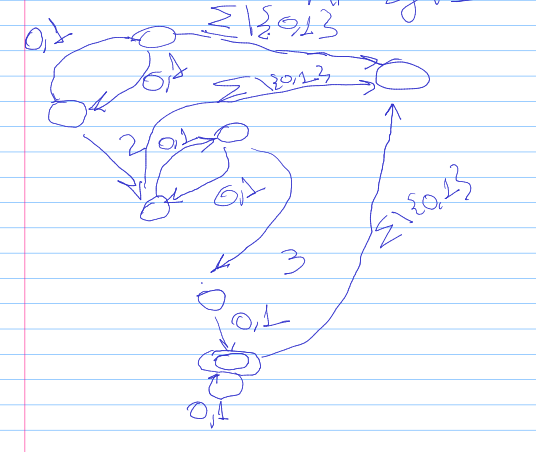 Σ\{0,1}
0,1
0,1
Σ\{0,1}
2
0,1
0,1
Σ\{0,1}
3
0,1
0,1